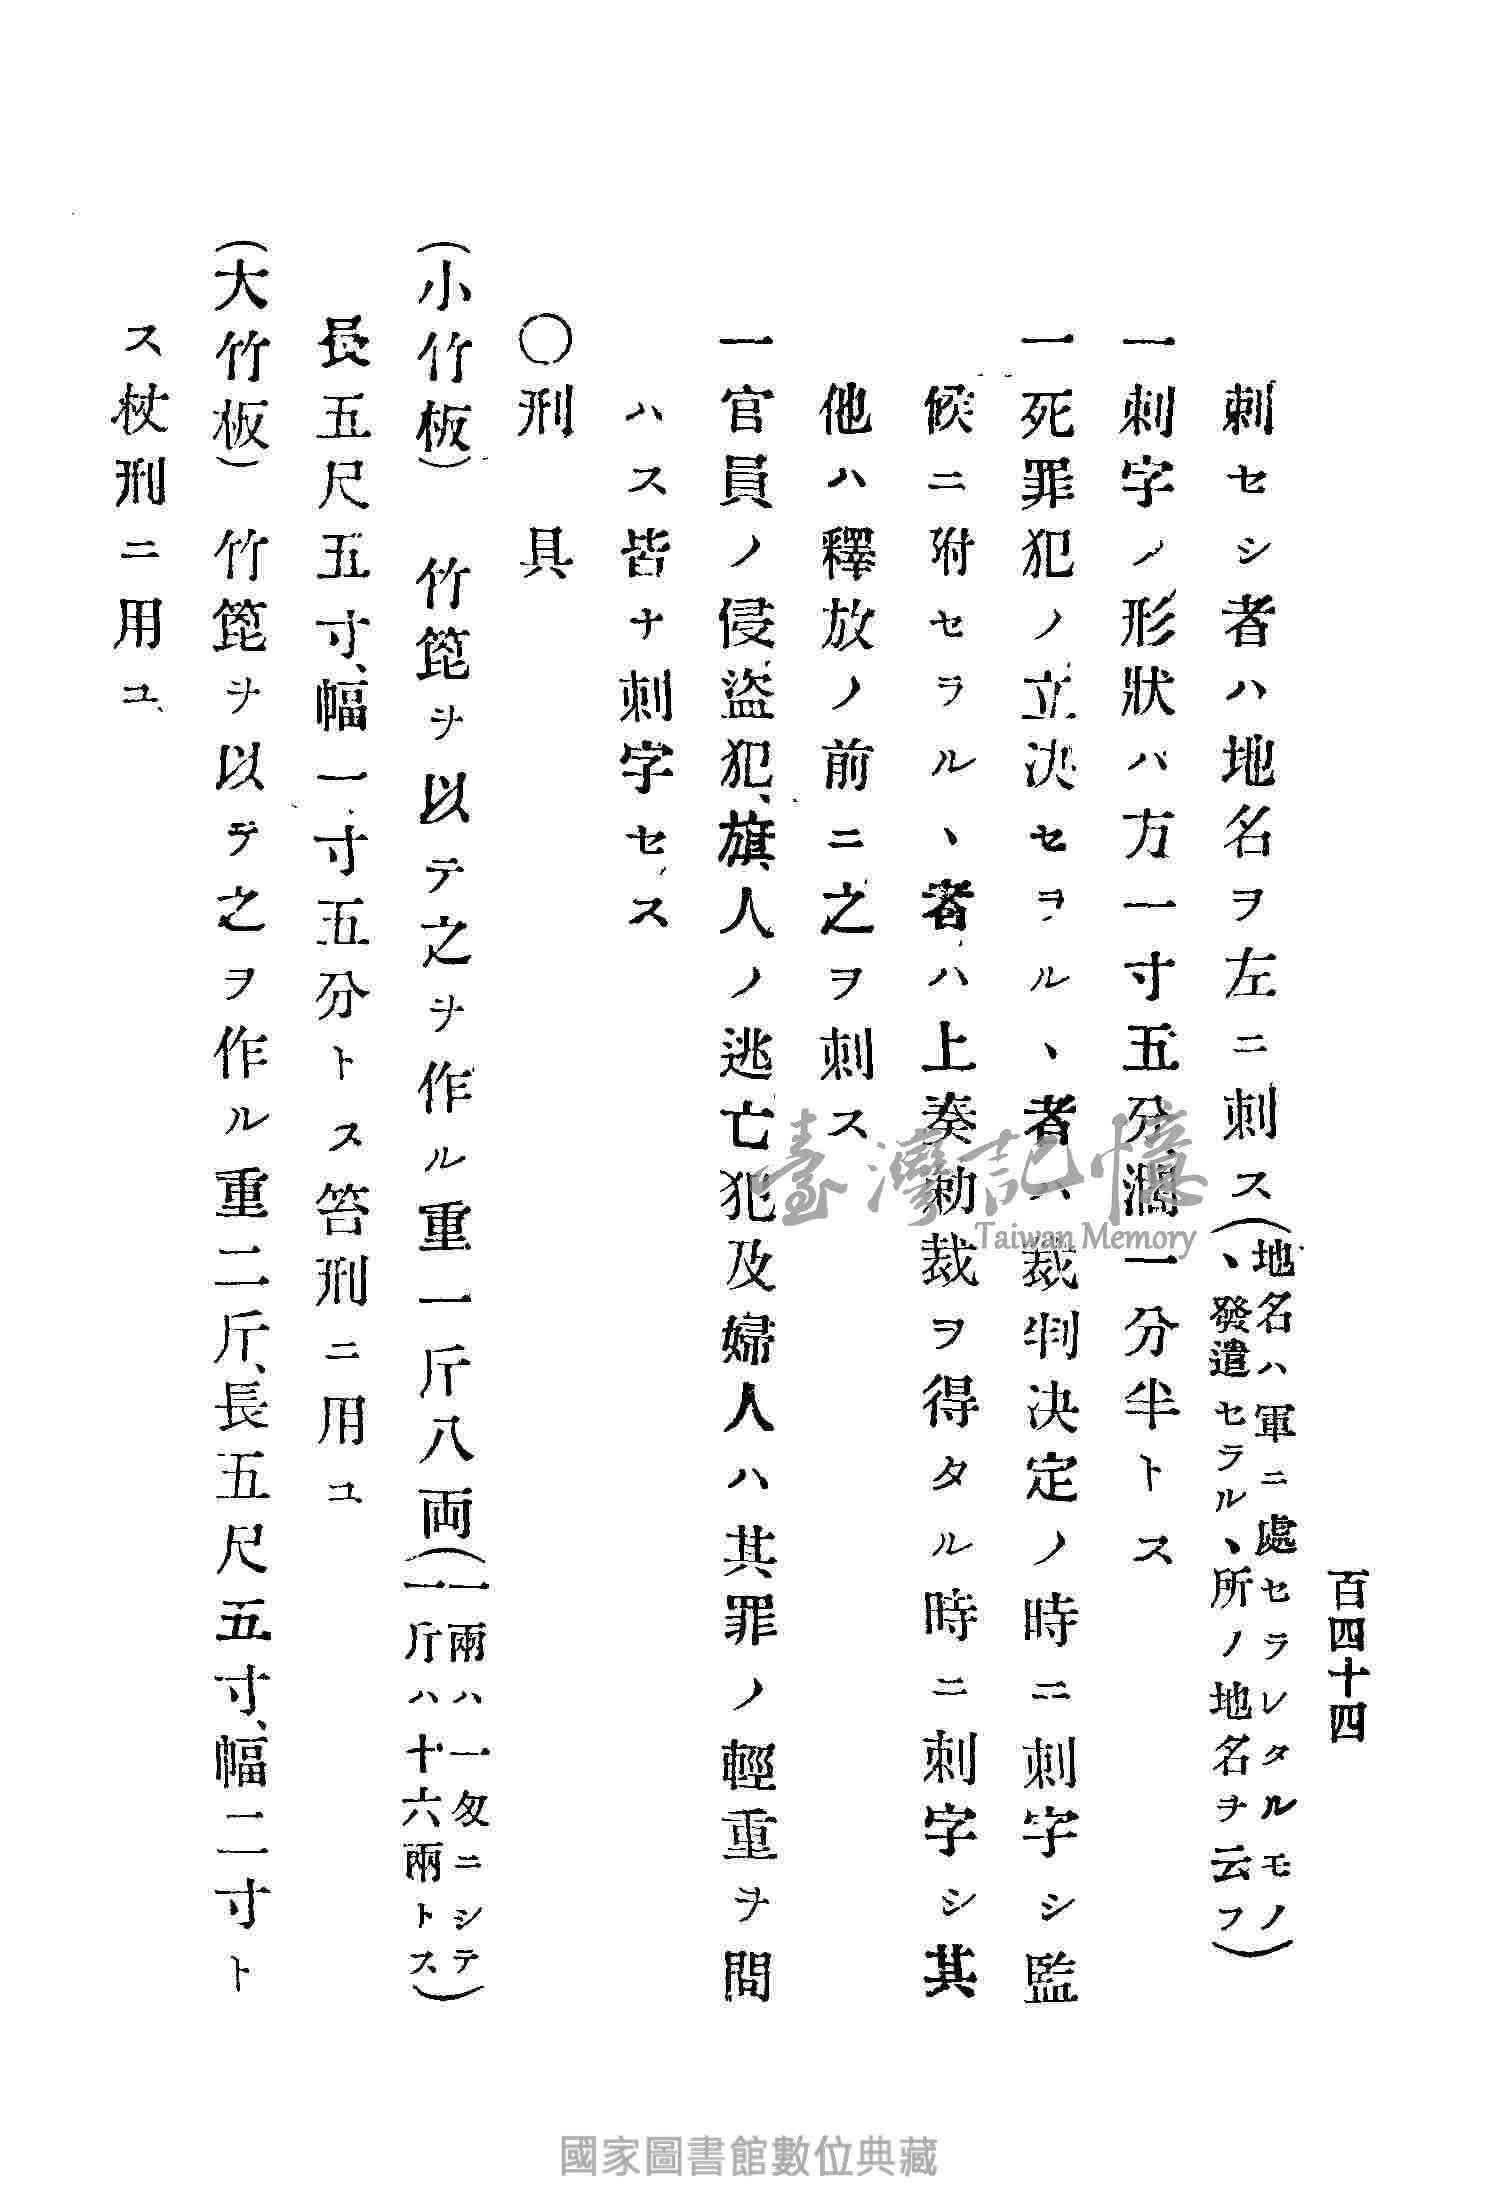 百四十四
刺セシ者ハ地名ヲ左ニ刺ス(地名ハ軍ニ處セラレタルモノ
、發遣セラル、所ノ地名ヲ云フ)
一刺字ノ形狀バ方一寸五分濶一分半トス
一死罪犯ノ立決セヲル、者ハ裁判決定ノ時ニ刺字シ監
候ニ附セラル、者ハ上奏勅裁ヲ得タル時ニ刺字シ其
他ハ釋放ノ前ニ之ヲ刺ス
一官員ノ侵盜犯、旗人ノ逃亡犯及婦人ハ其罪ノ輕重ヲ問
ハス皆ナ刺字セス
〇刑具
(小竹板) 竹箆ヲ以テ之ヲ作ル重一斤八両(一兩ハ一匁ニシテ
一斤ハ十六兩トス)
長五尺五寸、幅一寸五分トス笞刑ニ用ユ
(大竹板) 竹箆ヲ以テ之ヲ作ル重二斤、長五尺五寸、幅二寸ト
ス杖刑ニ用ユ、
臺灣記憶
Taiwan Memory
國家圖書館數位典藏